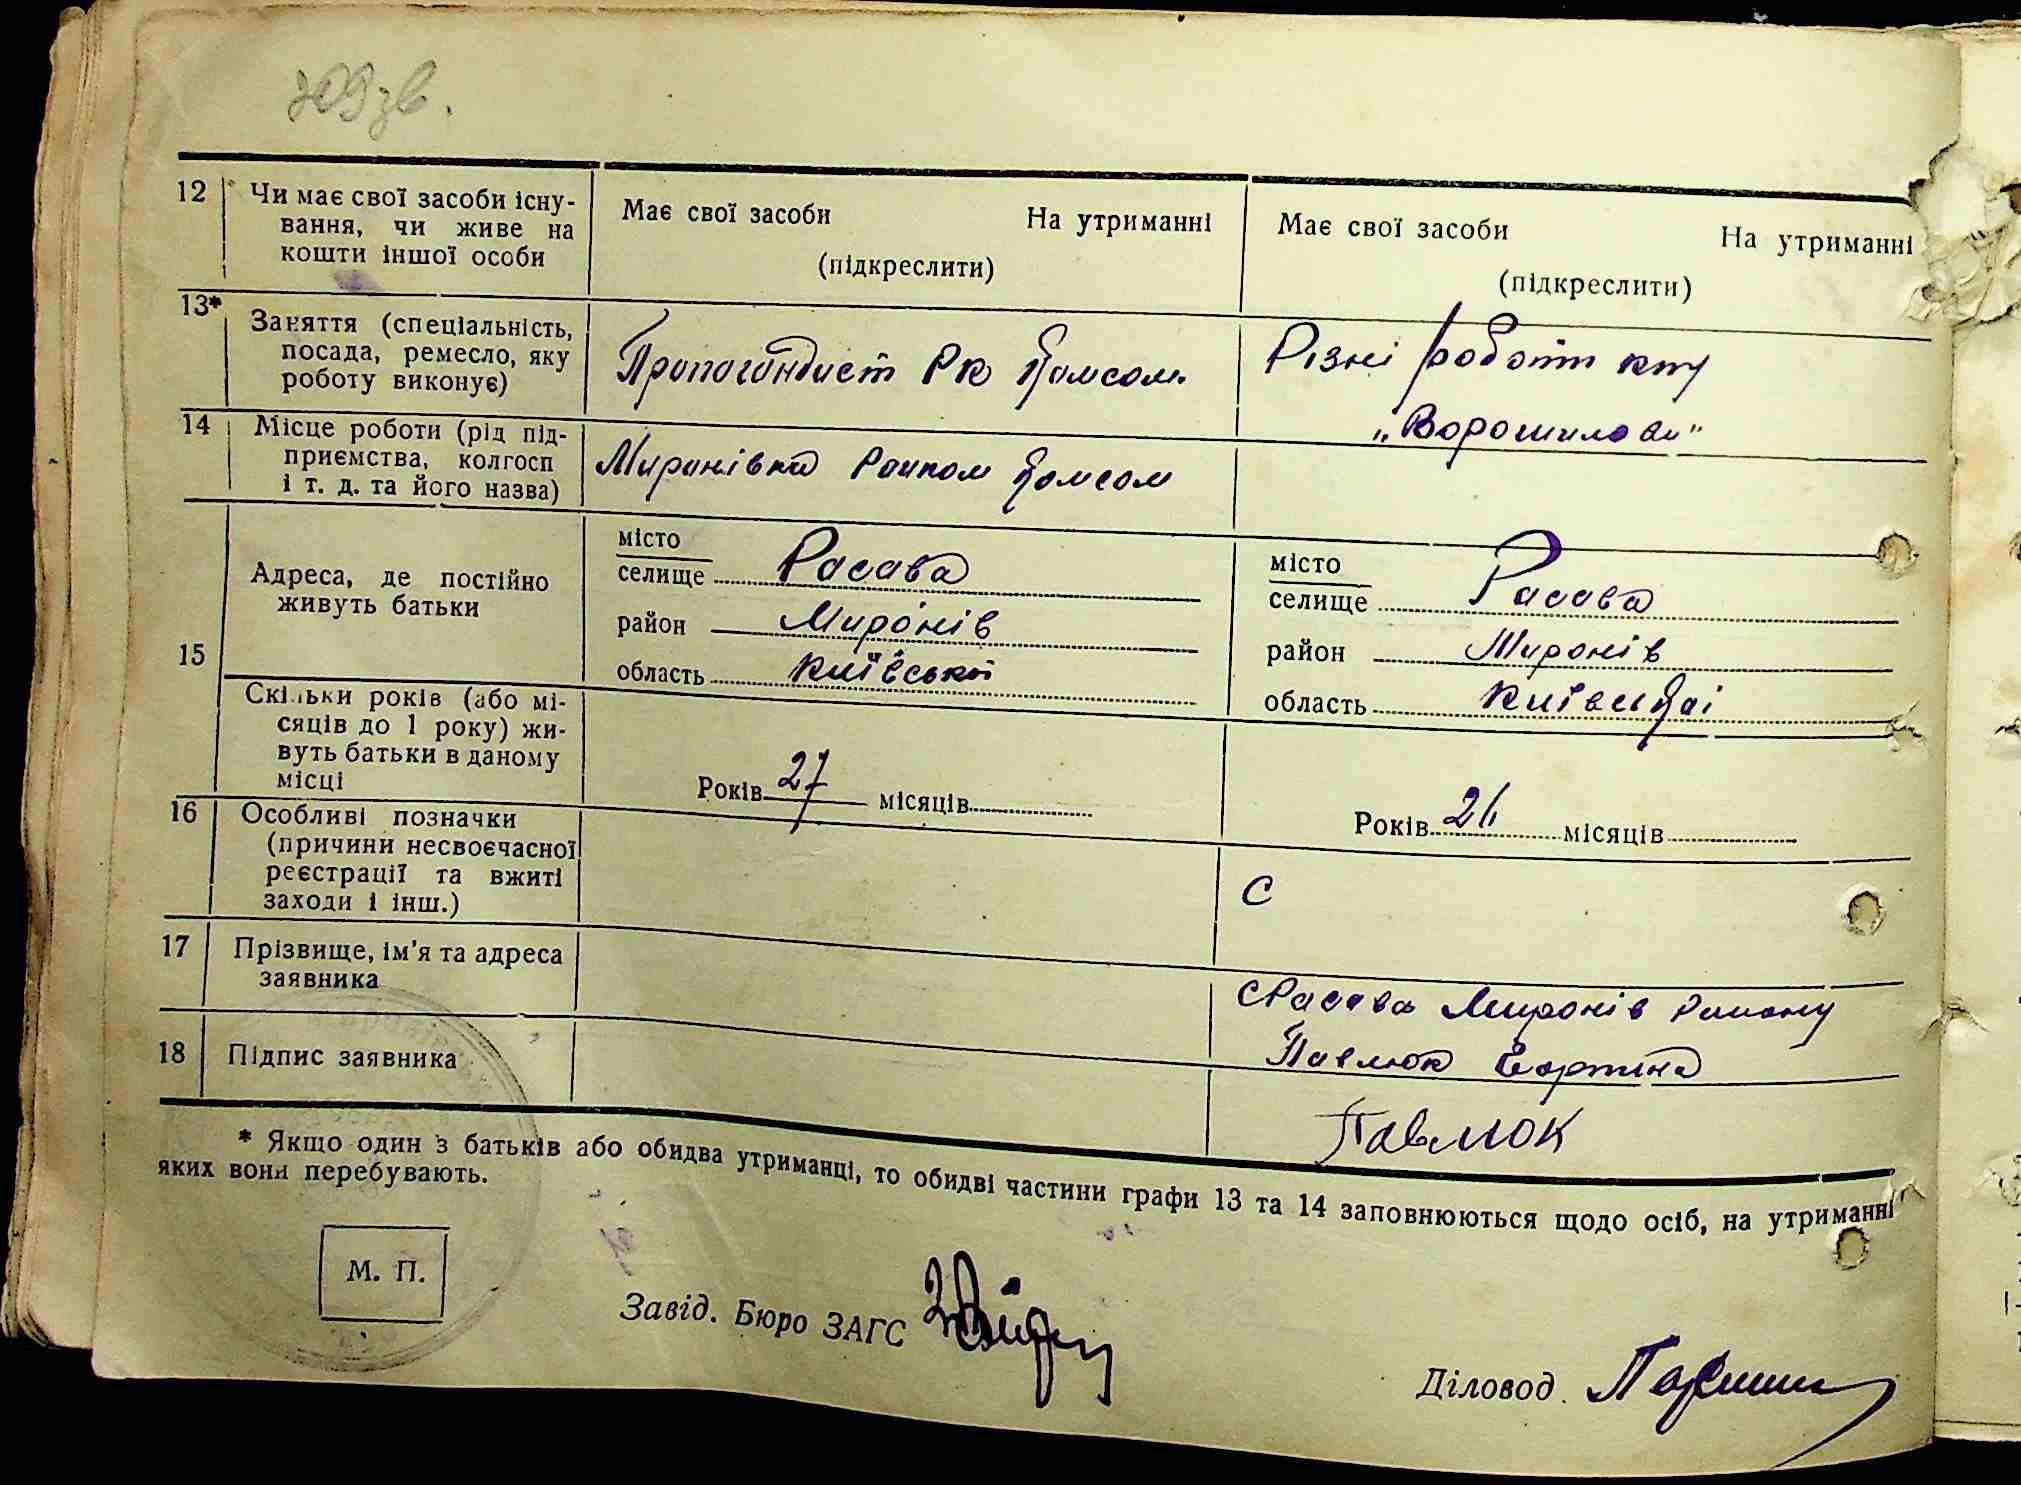 309 зв.
12 Чи має свої засоби існу-
вання, чи живе на
кошти іншої особи
Має свої засоби На утриманні
(підкреслити)
Має свої засоби На утриманні
(підкреслити)
13* Заняття (спеціальність,
посада, ремесло, яку
роботу виконує)
Пропагандист РК
Різні роботи
"Ворошилова"
14 Місце роботи (рід під-
приємства, колгосп
і т. д. та його назва)
Миронівка
15 Адреса, де постійно
живуть батьки
місто
селище Расава
район Миронів
область Київської
місто
селище Расава
район Миронів
область
Скільки років (або мі-
сяців до 1 року) жи-
вуть батьки в даному
місці
Років 27 місяців
Років 26 місяців
16 Особливі позначки
(причини несвоєчасної
реєстрації та вжиті
заходи і інш.)
С
17 Прізвище, ім'я та адреса
заявника
с Расава Миронів Району
Павлюк
18 Підпис заявника
Павлюк
* Якщо один з батьків або обидва утриманці, то обидві частини графи 13 та 14 заповнюються щодо осіб, на утриманні
яких вони перебувають.
М. П.
Завід. Бюро ЗАГС
Діловод